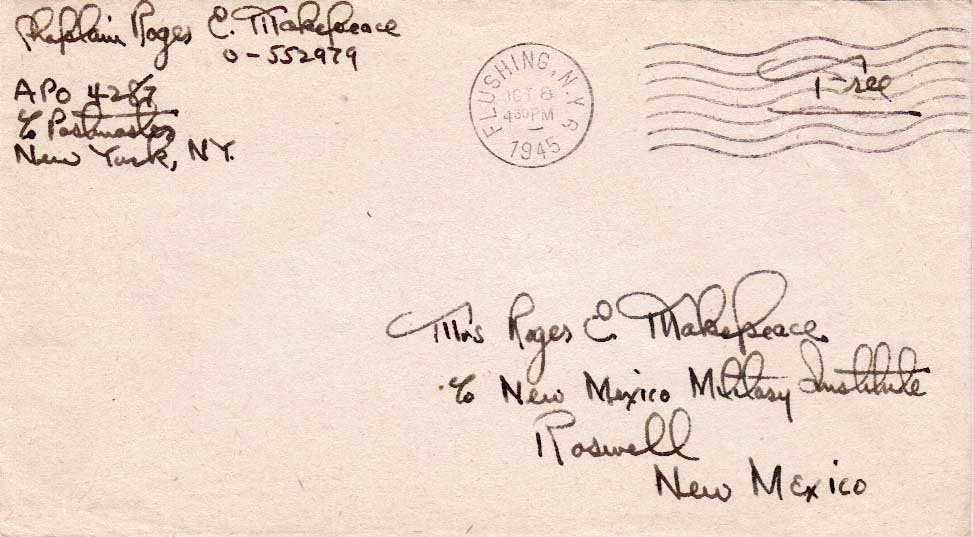 Chaplain Roger E. Makepeace
O-552979
APO 4287
c/o Postmaster
New York, NY.
FLUSHING, N.Y.
OCT 6
430PM
1945
Free
Mrs Roger E Makepeace
c/o New Mexico Military Institute
Roswell
New Mexico